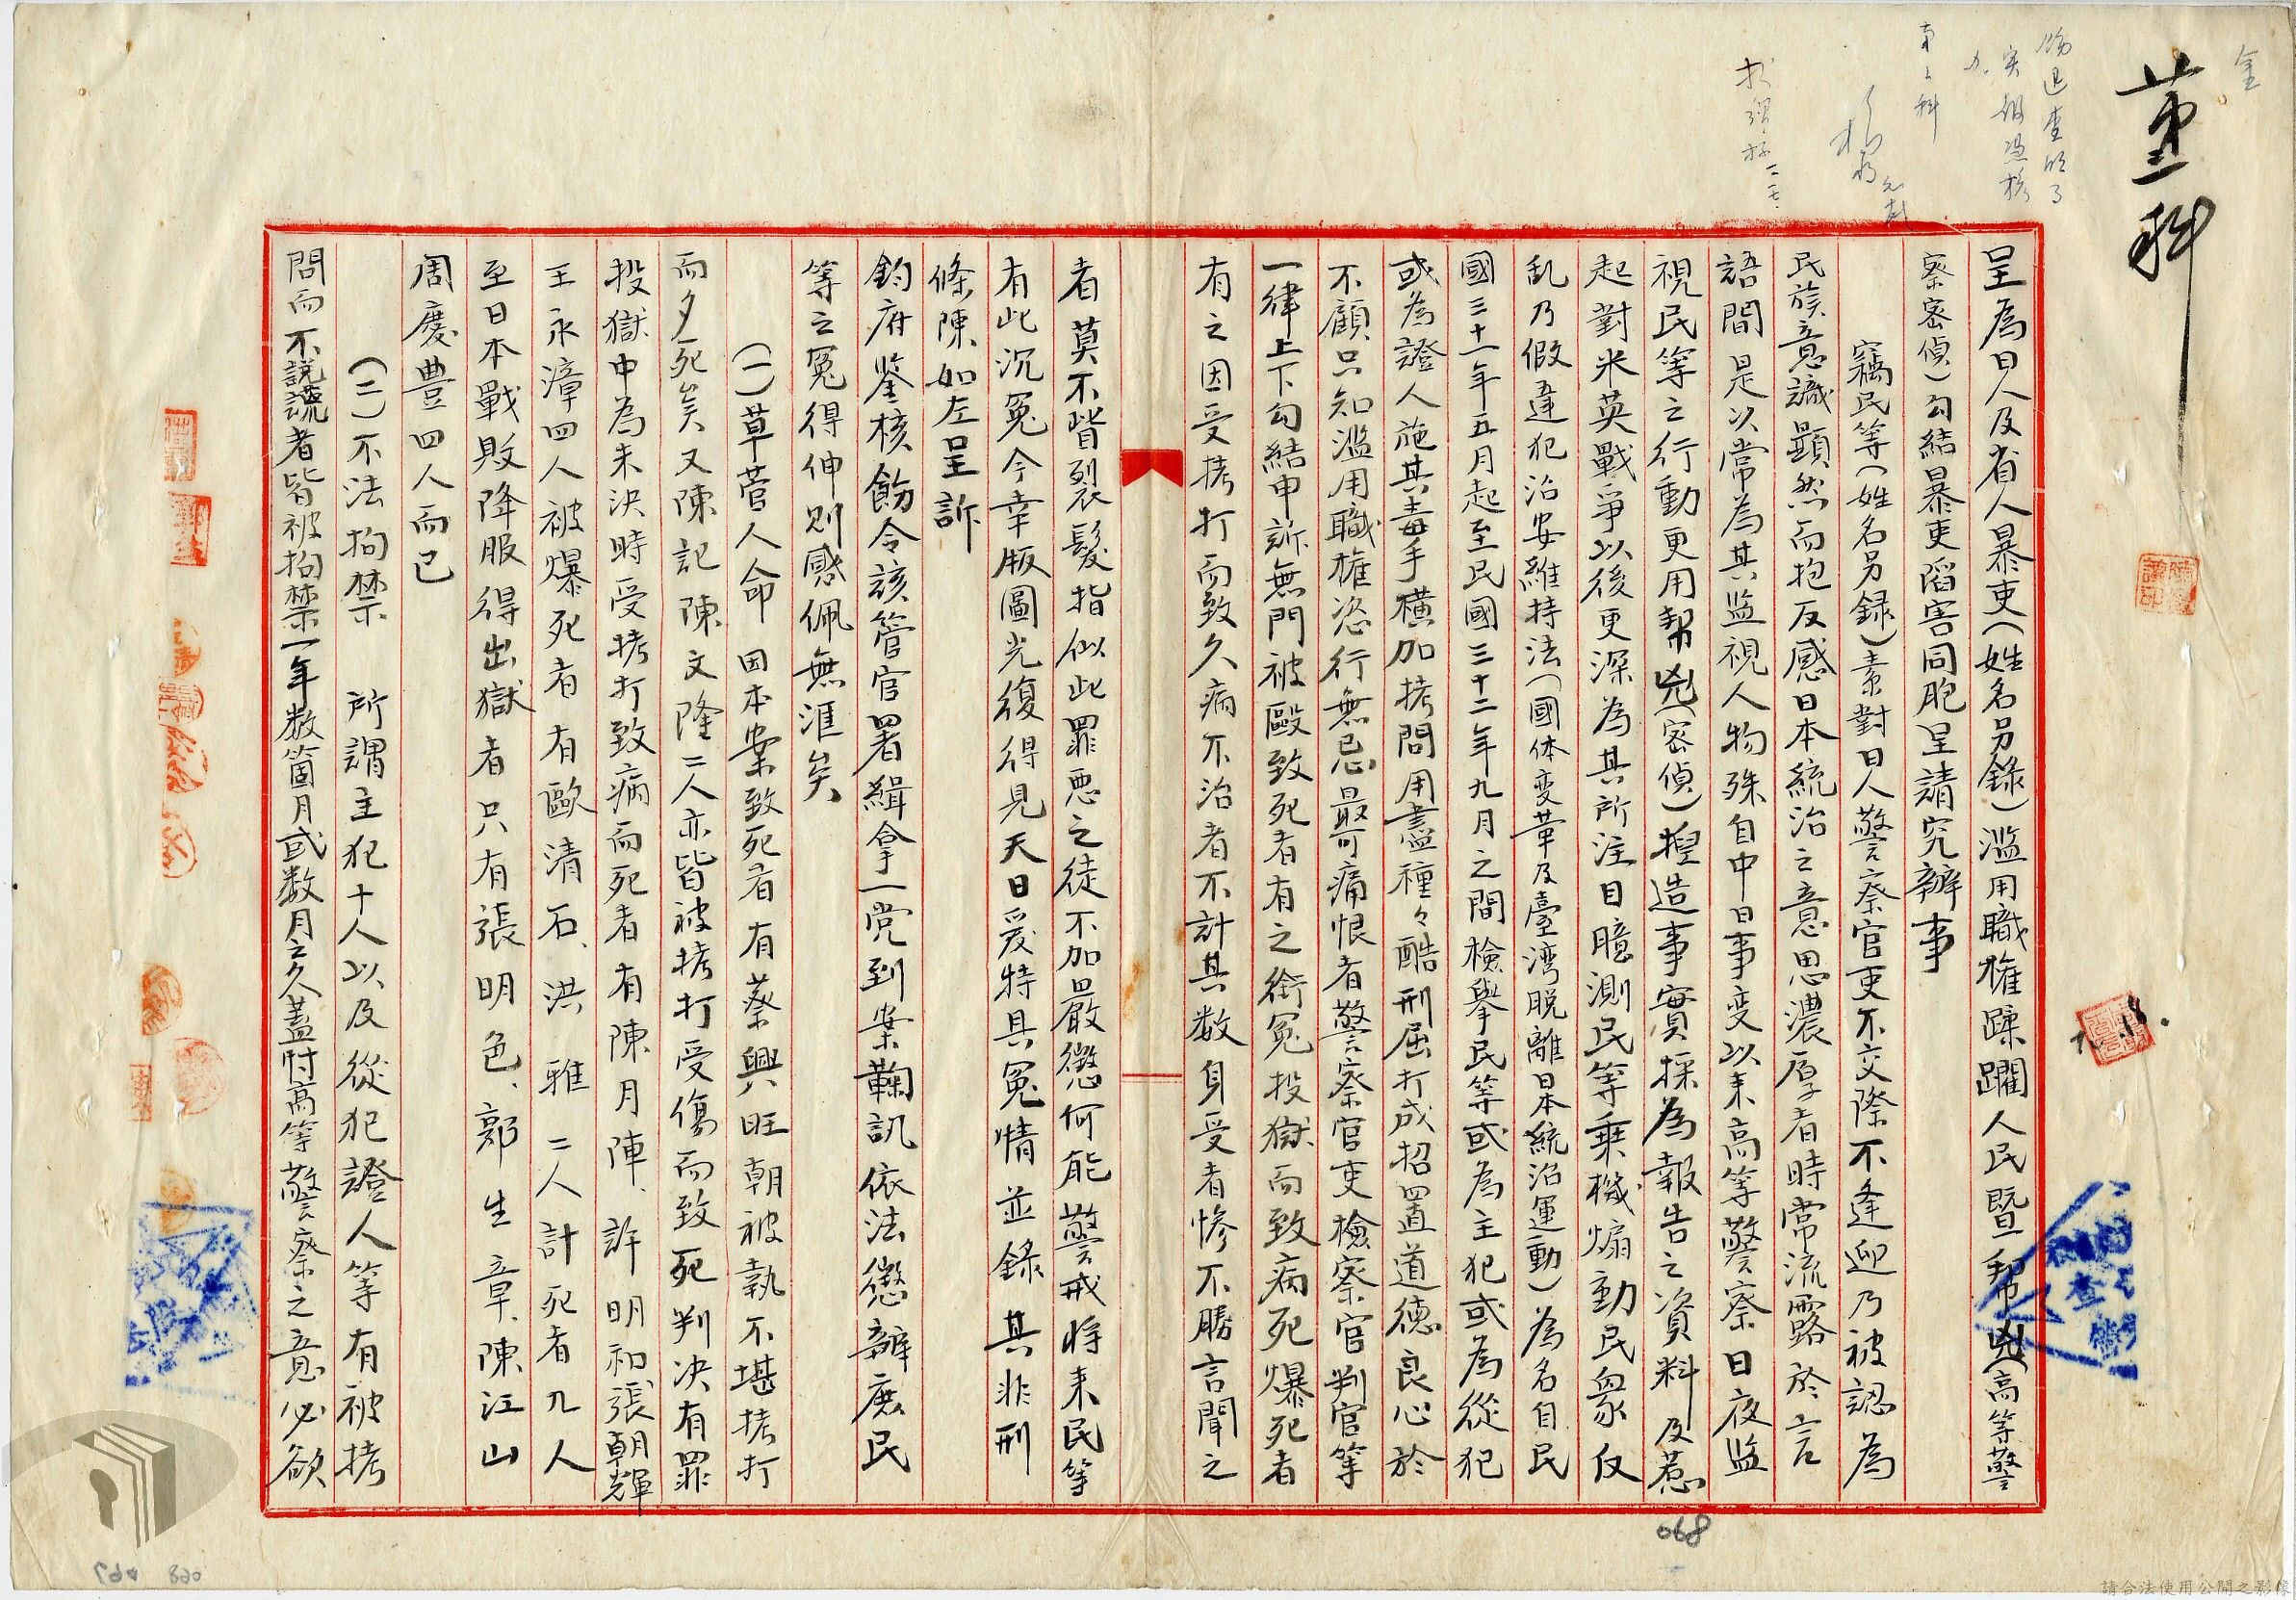 金
董科
呈為日人及省人暴吏(姓名另錄)濫用職權蹂躪人民暨幫兇(高等警
察密偵)勾結暴吏陷害同胞呈請究辦事
竊民等(姓名另錄)素對日人警察官吏不交際不逢迎乃被認為
民族意識顯然而抱反感日本統治之意思濃厚者時常流露於言
語間是以常為其監視人物殊自中日事变以来高等警察日夜監
視民等之行動更用幫兇(密偵)揑造事實採為報告之資料及惹
起對米英戰爭以後更深為其所注目臆測民等乗機煽動民眾反
乱乃假違犯治安維持法(國体变革及臺湾脱離日本統治運動)為名自民
國三十一年五月起至民國三十二年九月之間檢舉民等或為主犯或為從犯
或為證人施其毒手橫加拷問用盡種々酷刑屈打成招置道德良心於
不顧只知濫用職權恣行無忌最可痛恨者警察官吏檢察官判官等
一律上下勾結申訴無門被毆致死者有之銜冤投獄而致病死爆死者
有之因受拷打而致久病不治者不計其数身受者慘不勝言聞之
者莫不眥裂髮指似此罪悪之徒不加嚴懲何能警戒将来民等
有此沉冤今幸版圖光復得見天日爰特具冤情並錄其非刑
條陳如左呈訴
鈞府鑒核飭令該管官署緝拿一党到案鞠訊依法懲辦庶民
等之冤得伸則感佩無涯矣
(一)草菅人命 因本案致死者有蔡興旺朝被執不堪拷打
而夕死矣又陳記陳文隆二人亦皆被拷打受傷而致死判决有罪
投獄中為未決時受拷打致病而死者有陳月陣、許明和張朝輝
王永漳四人被爆死者有歐清石、洪雅二人計死者九人
至日本戰敗降服得出獄者只有張明色、郭生章、陳江山
周慶豊四人而已
(二)不法拘禁 所謂主犯十人以及從犯證人等有被拷
問而不説謊者皆被拘禁一年数箇月或数月之久蓋忖高等警察之意必欲
068
請合法使用公開之影像